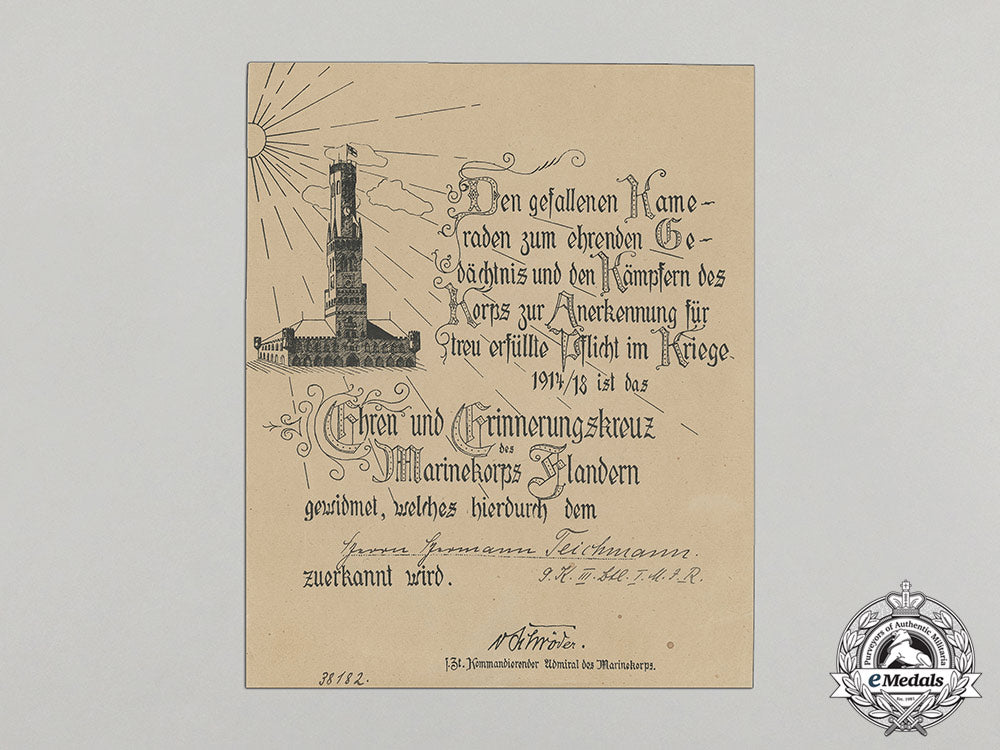 Den gefallenen Kame-
raden zum ehrenden Ge-
dächtnis und den Kämpfern des
Korps zur Anerkennung für
treu erfüllte Pflicht im Kriege
1914/18 ist das
Ehren und Erinnerungskreuz
des
Marinekorps Flandern
gewidmet, welches hierdurch dem
Herrn Hermann Teichmann.
zuerkannt wird.
9. K. III. Btl. I. M. I. R.
v Schröder.
s. Zt. Kommandierender Admiral des Marinekorps.
38182.
Purveyors of Authentic Militaria
eMedals